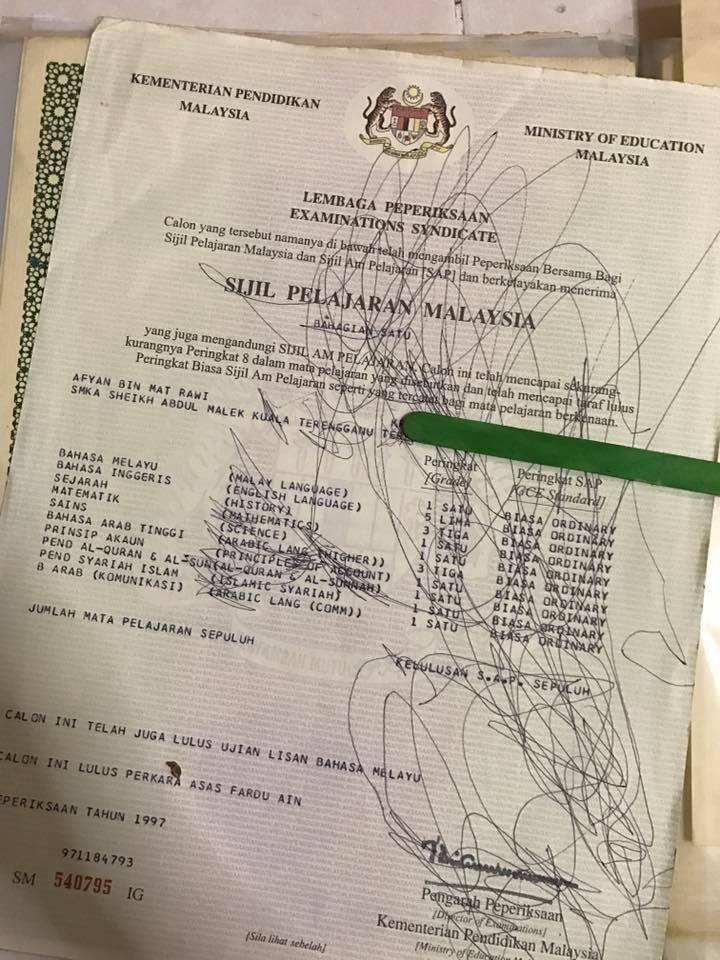 KEMENTERIAN PENDIDIKAN
MALAYSIA
MINISTRY OF EDUCATION
MALAYSIA
LEMBAGA PEPERIKSAAN
EXAMINATIONS SYNDICATE
Calon yang tersebut namanya di bawah telah mengambil Peperiksaan Bersama Bagi
Sijil Pelajaran Malaysia dan Sijil Am Pelajaran [SAP] dan berkelayakan menerima
SIJIL PELAJARAN MALAYSIA
BAHAGIAN SATU
yang juga mengandungi SIJIL AM PELAJARAN. Calon ini telah mencapai sekurang-
kurangnya Peringkat 8 dalam mata pelajaran yang disebutkan dan telah mencapai taraf lulus
Peringkat Biasa Sijil Am Pelajaran seperti yang tercatat bagi mata pelajaran berkenaan.
AFYAN BIN MAT RAWI
SMKA SHEIKH ABDUL MALEK KUALA TERENGGANU
Peringkat Peringkat SAP
[Grade] [GCE Standard]
BAHASA MELAYU (MALAY LANGUAGE) 1 SATU BIASA ORDINARY
BAHASA INGGERIS (ENGLISH LANGUAGE) 5 LIMA BIASA ORDINARY
SEJARAH (HISTORY) 3 TIGA BIASA ORDINARY
MATEMATIK (MATHEMATICS) 1 SATU BIASA ORDINARY
SAINS (SCIENCE) 1 SATU BIASA ORDINARY
BAHASA ARAB TINGGI (ARABIC LANG (HIGHER)) 3 TIGA BIASA ORDINARY
PRINSIP AKAUN (PRINCIPLES OF ACCOUNT) 1 SATU BIASA ORDINARY
PEND AL-QURAN & AL-SUN(AL-QURAN & AL-SUNNAH) 1 SATU BIASA ORDINARY
PEND SYARIAH ISLAM (ISLAMIC SYARIAH) 1 SATU BIASA ORDINARY
B ARAB (KOMUNIKASI) (ARABIC LANG (COMM)) 1 SATU BIASA ORDINARY
JUMLAH MATA PELAJARAN SEPULUH
KELULUSAN S.A.P. SEPULUH
CALON INI TELAH JUGA LULUS UJIAN LISAN BAHASA MELAYU
CALON INI LULUS PERKARA ASAS FARDU AIN
EPERIKSAAN TAHUN 1997
971184793
SM 540795 IG
Pengarah Peperiksaan
[Director of Examinations]
Kementerian Pendidikan Malaysia
[Ministry of Education
[Sila lihat sebelah]